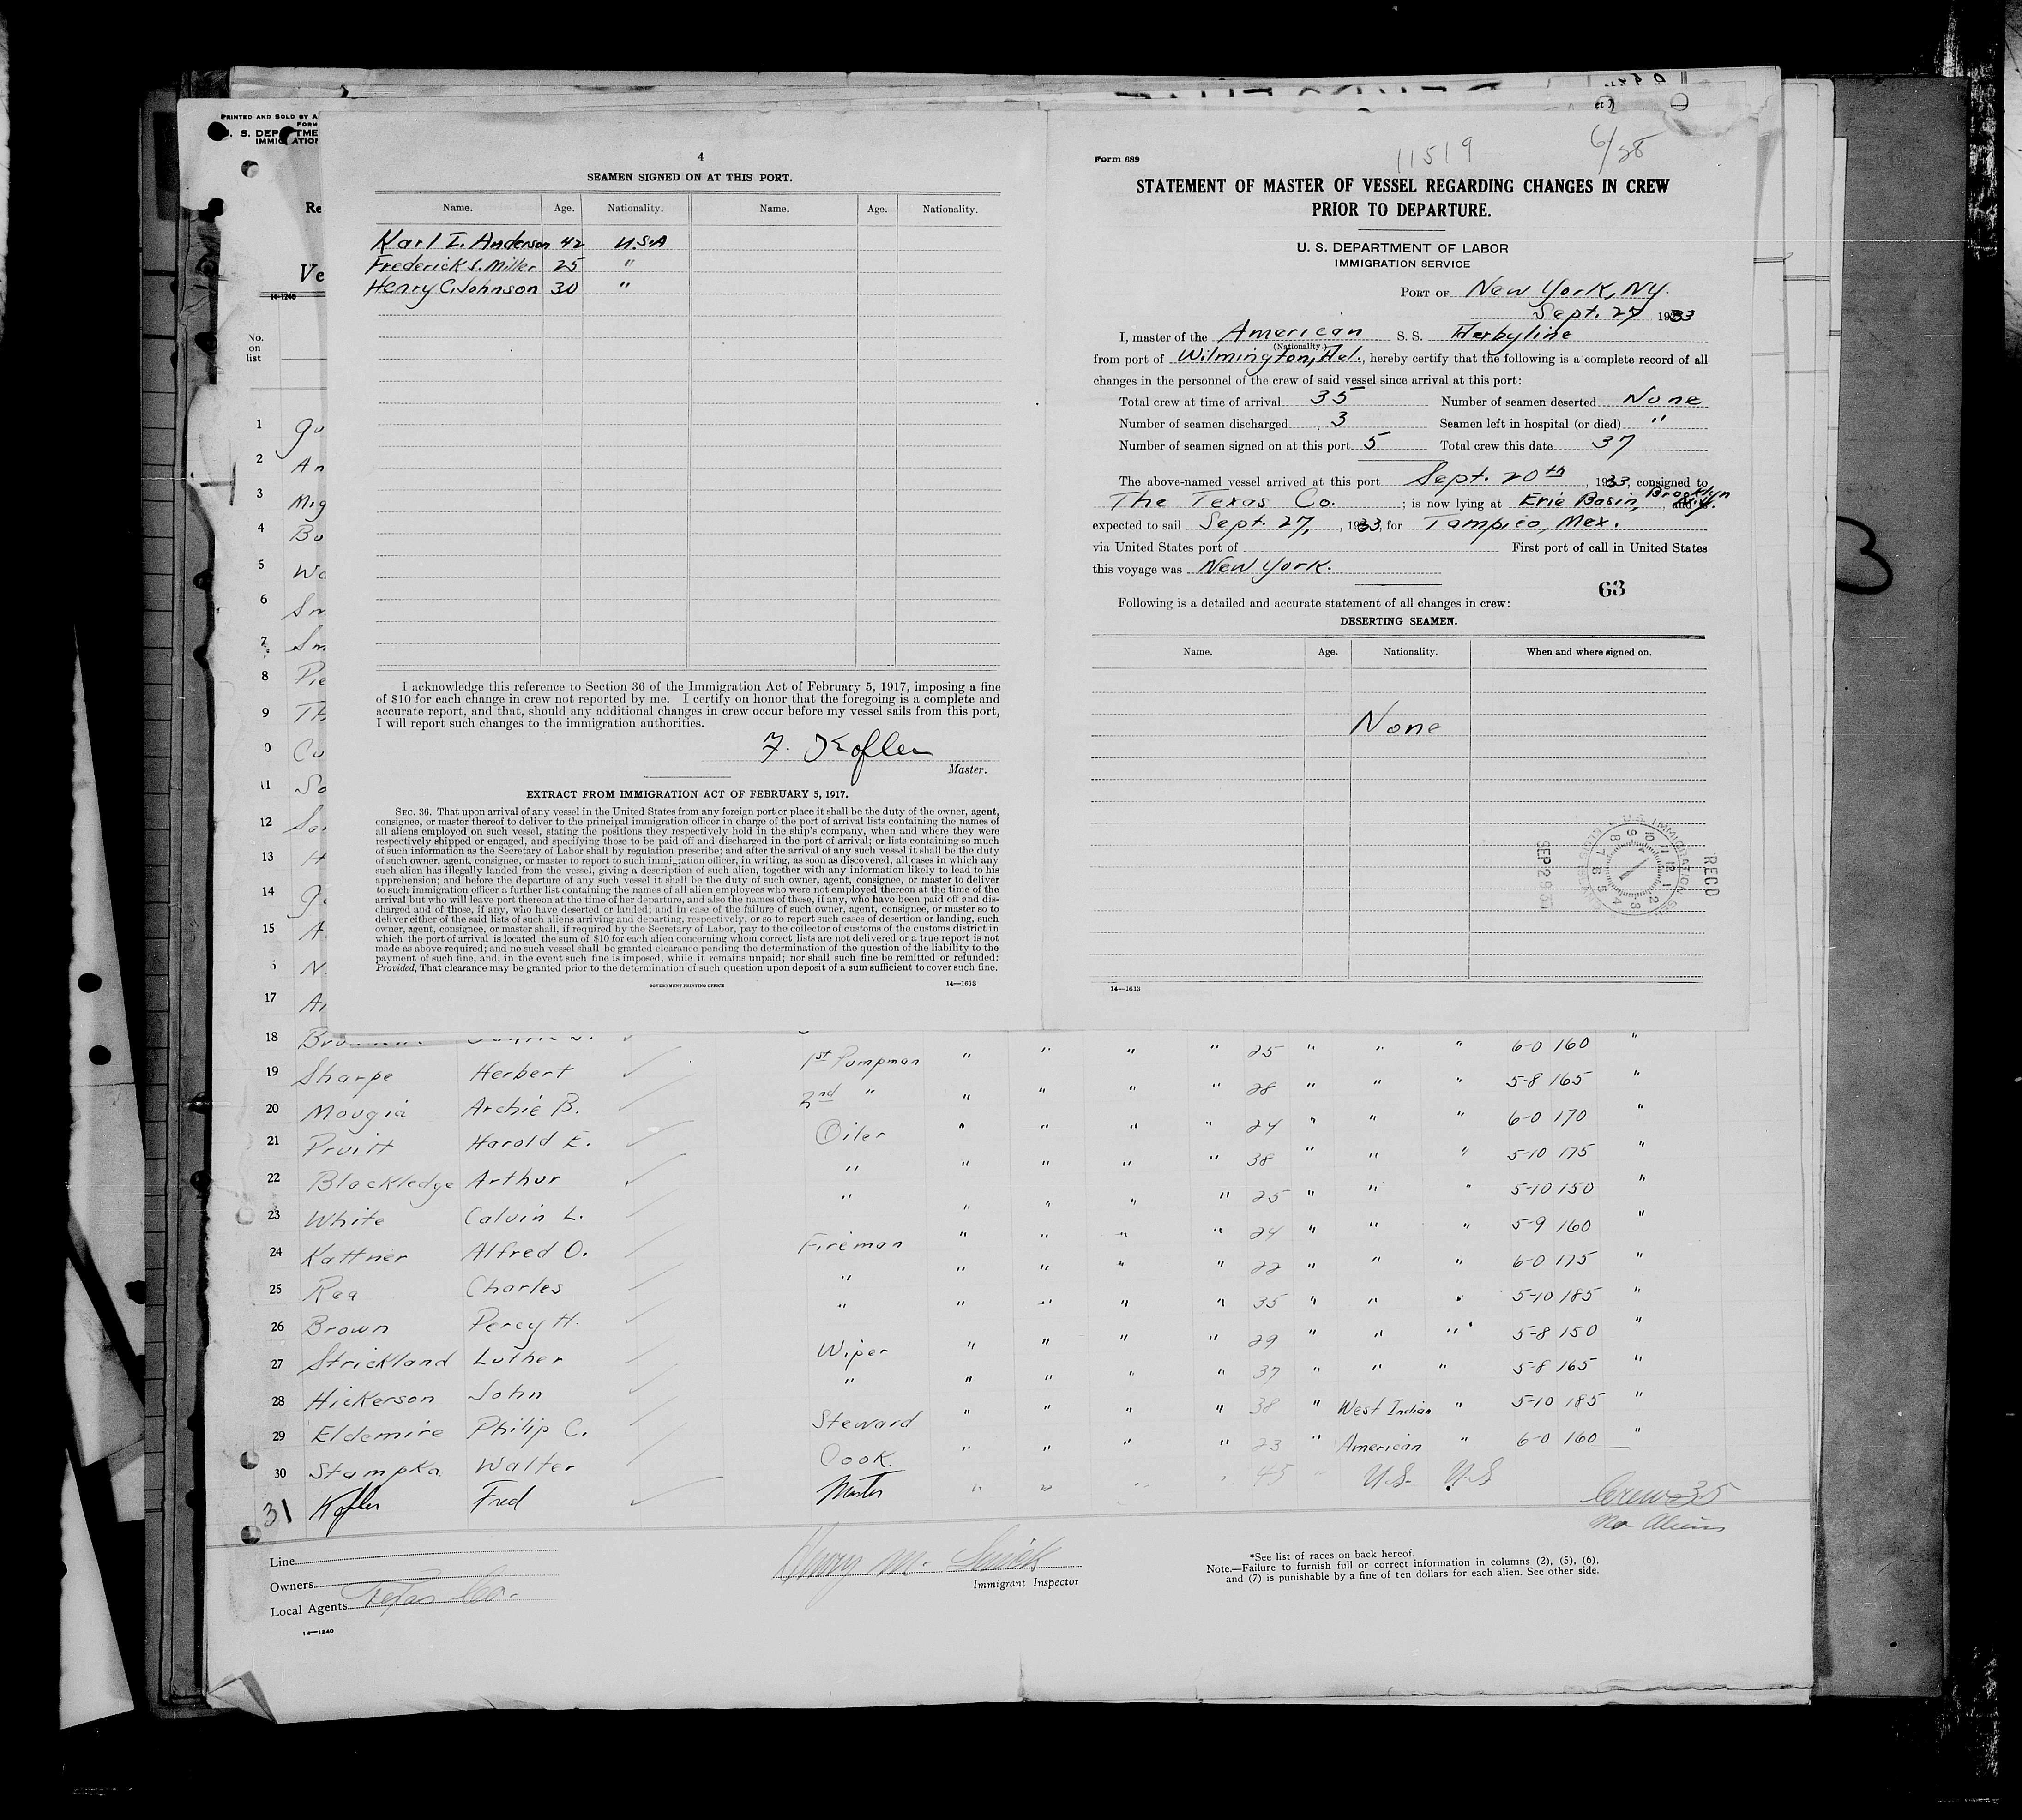 PRINTED AND SOLD BY A
FORM
U. S. DEPARTME
IMMIGRATION
Re
Ve
14-1240
No.
on
list
4
SEAMEN SIGNED ON AT THIS PORT.
Name. Age. Nationality. Name. Age. Nationality.
Karl I. Anderson 42 U.S.A
Frederick S. Miller 25 "
Henry C. Johnson 30 "
I acknowledge this reference to Section 36 of the Immigration Act of February 5, 1917, imposing a fine
of $10 for each change in crew not reported by me. I certify on honor that the foregoing is a complete and
accurate report, and that, should any additional changes in crew occur before my vessel sails from this port,
I will report such changes to the immigration authorities.
F. Kofler
Master.
EXTRACT FROM IMMIGRATION ACT OF FEBRUARY 5, 1917.
SEC. 36. That upon arrival of any vessel in the United States from any foreign port or place it shall be the duty of the owner, agent,
consignee, or master thereof to deliver to the principal immigration officer in charge of the port of arrival lists containing the names of
all aliens employed on such vessel, stating the positions they respectively hold in the ship's company, when and where they were
respectively shipped or engaged, and specifying those to be paid off and discharged in the port of arrival; or lists containing so much
of such information as the Secretary of Labor shall by regulation prescribe; and after the arrival of any such vessel it shall be the duty
of such owner, agent, consignee, or master to report to such immigration officer, in writing, as soon as discovered, all cases in which any
such alien has illegally landed from the vessel, giving a description of such alien, together with any information likely to lead to his
apprehension; and before the departure of any such vessel it shall be the duty of such owner, agent, consignee, or master to deliver
to such immigration officer a further list containing the names of all alien employees who were not employed thereon at the time of the
arrival but who will leave port thereon at the time of her departure, and also the names of those, if any, who have been paid off and dis-
charged and of those, if any, who have deserted or landed; and in case of the failure of such owner, agent, consignee, or master so to
deliver either of the said lists of such aliens arriving and departing, respectively, or so to report such cases of desertion or landing, such
owner, agent, consignee, or master shall, if required by the Secretary of Labor, pay to the collector of customs of the customs district in
which the port of arrival is located the sum of $10 for each alien concerning whom correct lists are not delivered or a true report is not
made as above required; and no such vessel shall be granted clearance pending the determination of the question of the liability to the
payment of such fine, and, in the event such fine is imposed, while it remains unpaid; nor shall such fine be remitted or refunded:
Provided, That clearance may be granted prior to the determination of such question upon deposit of a sum sufficient to cover such fine.
GOVERNMENT PRINTING OFFICE 14—1613
Form 689
11519
6/28
STATEMENT OF MASTER OF VESSEL REGARDING CHANGES IN CREW
PRIOR TO DEPARTURE.
U. S. DEPARTMENT OF LABOR
IMMIGRATION SERVICE
PORT OF New York, NY.
Sept. 27 1933
I, master of the American S. S. Derbyline
(Nationality.)
from port of Wilmington, Del., hereby certify that the following is a complete record of all
changes in the personnel of the crew of said vessel since arrival at this port:
Total crew at time of arrival 35 Number of seamen deserted None
Number of seamen discharged 3 Seamen left in hospital (or died) "
Number of seamen signed on at this port 5 Total crew this date 37
The above-named vessel arrived at this port Sept. 20th, 1933, consigned to
The Texas Co. ; is now lying at Erie Basin, Brooklyn N.Y. and is
expected to sail Sept. 27, 1933, for Tampico, Mex.
via United States port of First port of call in United States
this voyage was New York.
63
Following is a detailed and accurate statement of all changes in crew:
DESERTING SEAMEN.
Name. Age. Nationality. When and where signed on.
None
RECD
SEP 29 33
14—1613
3
1 gu
2 An
3 Mig
4 Bu
5 Wa
6 Sm
7 Sm
8 Pie
9 Th
0 Co
11 Sa
12 Sa
13 H
14 ga
15 A
N.
17 Ar
18 25 " " " 6-0 160 "
19 Sharpe Herbert 1st Pumpman " " " " 28 " " " 5-8 165 "
20 Mougia Archie B. 2nd " " " " " 24 " " " 6-0 170 "
21 Pruitt Harold E. Oiler " " " " 38 " " " 5-10 175 "
22 Blackledge Arthur " " " " " 25 " " " 5-10 150 "
23 White Calvin L. " " " " " 24 " " " 5-9 160 "
24 Kattner Alfred O. Fireman " " " " 22 " " " 6-0 175 "
25 Rea Charles " " " " " 35 " " " 5-10 185 "
26 Brown Percy H. " " " " " 29 " " " 5-8 150 "
27 Strickland Luther Wiper " " " " 37 " " " 5-8 165 "
28 Hickerson John " " " " " 38 " West Indian " 5-10 185 "
29 Eldemire Philip C. Steward " " " " 23 " American " 6-0 160 "
30 Stampka Walter Cook. " " " " 45 " U.S. U.S
31 Kofler Fred Master " "
Crew 35
No Aliens
Line
Owners
Local Agents Texas Co.
14—1240
Immigrant Inspector
*See list of races on back hereof.
Note.—Failure to furnish full or correct information in columns (2), (5), (6),
and (7) is punishable by a fine of ten dollars for each alien. See other side.